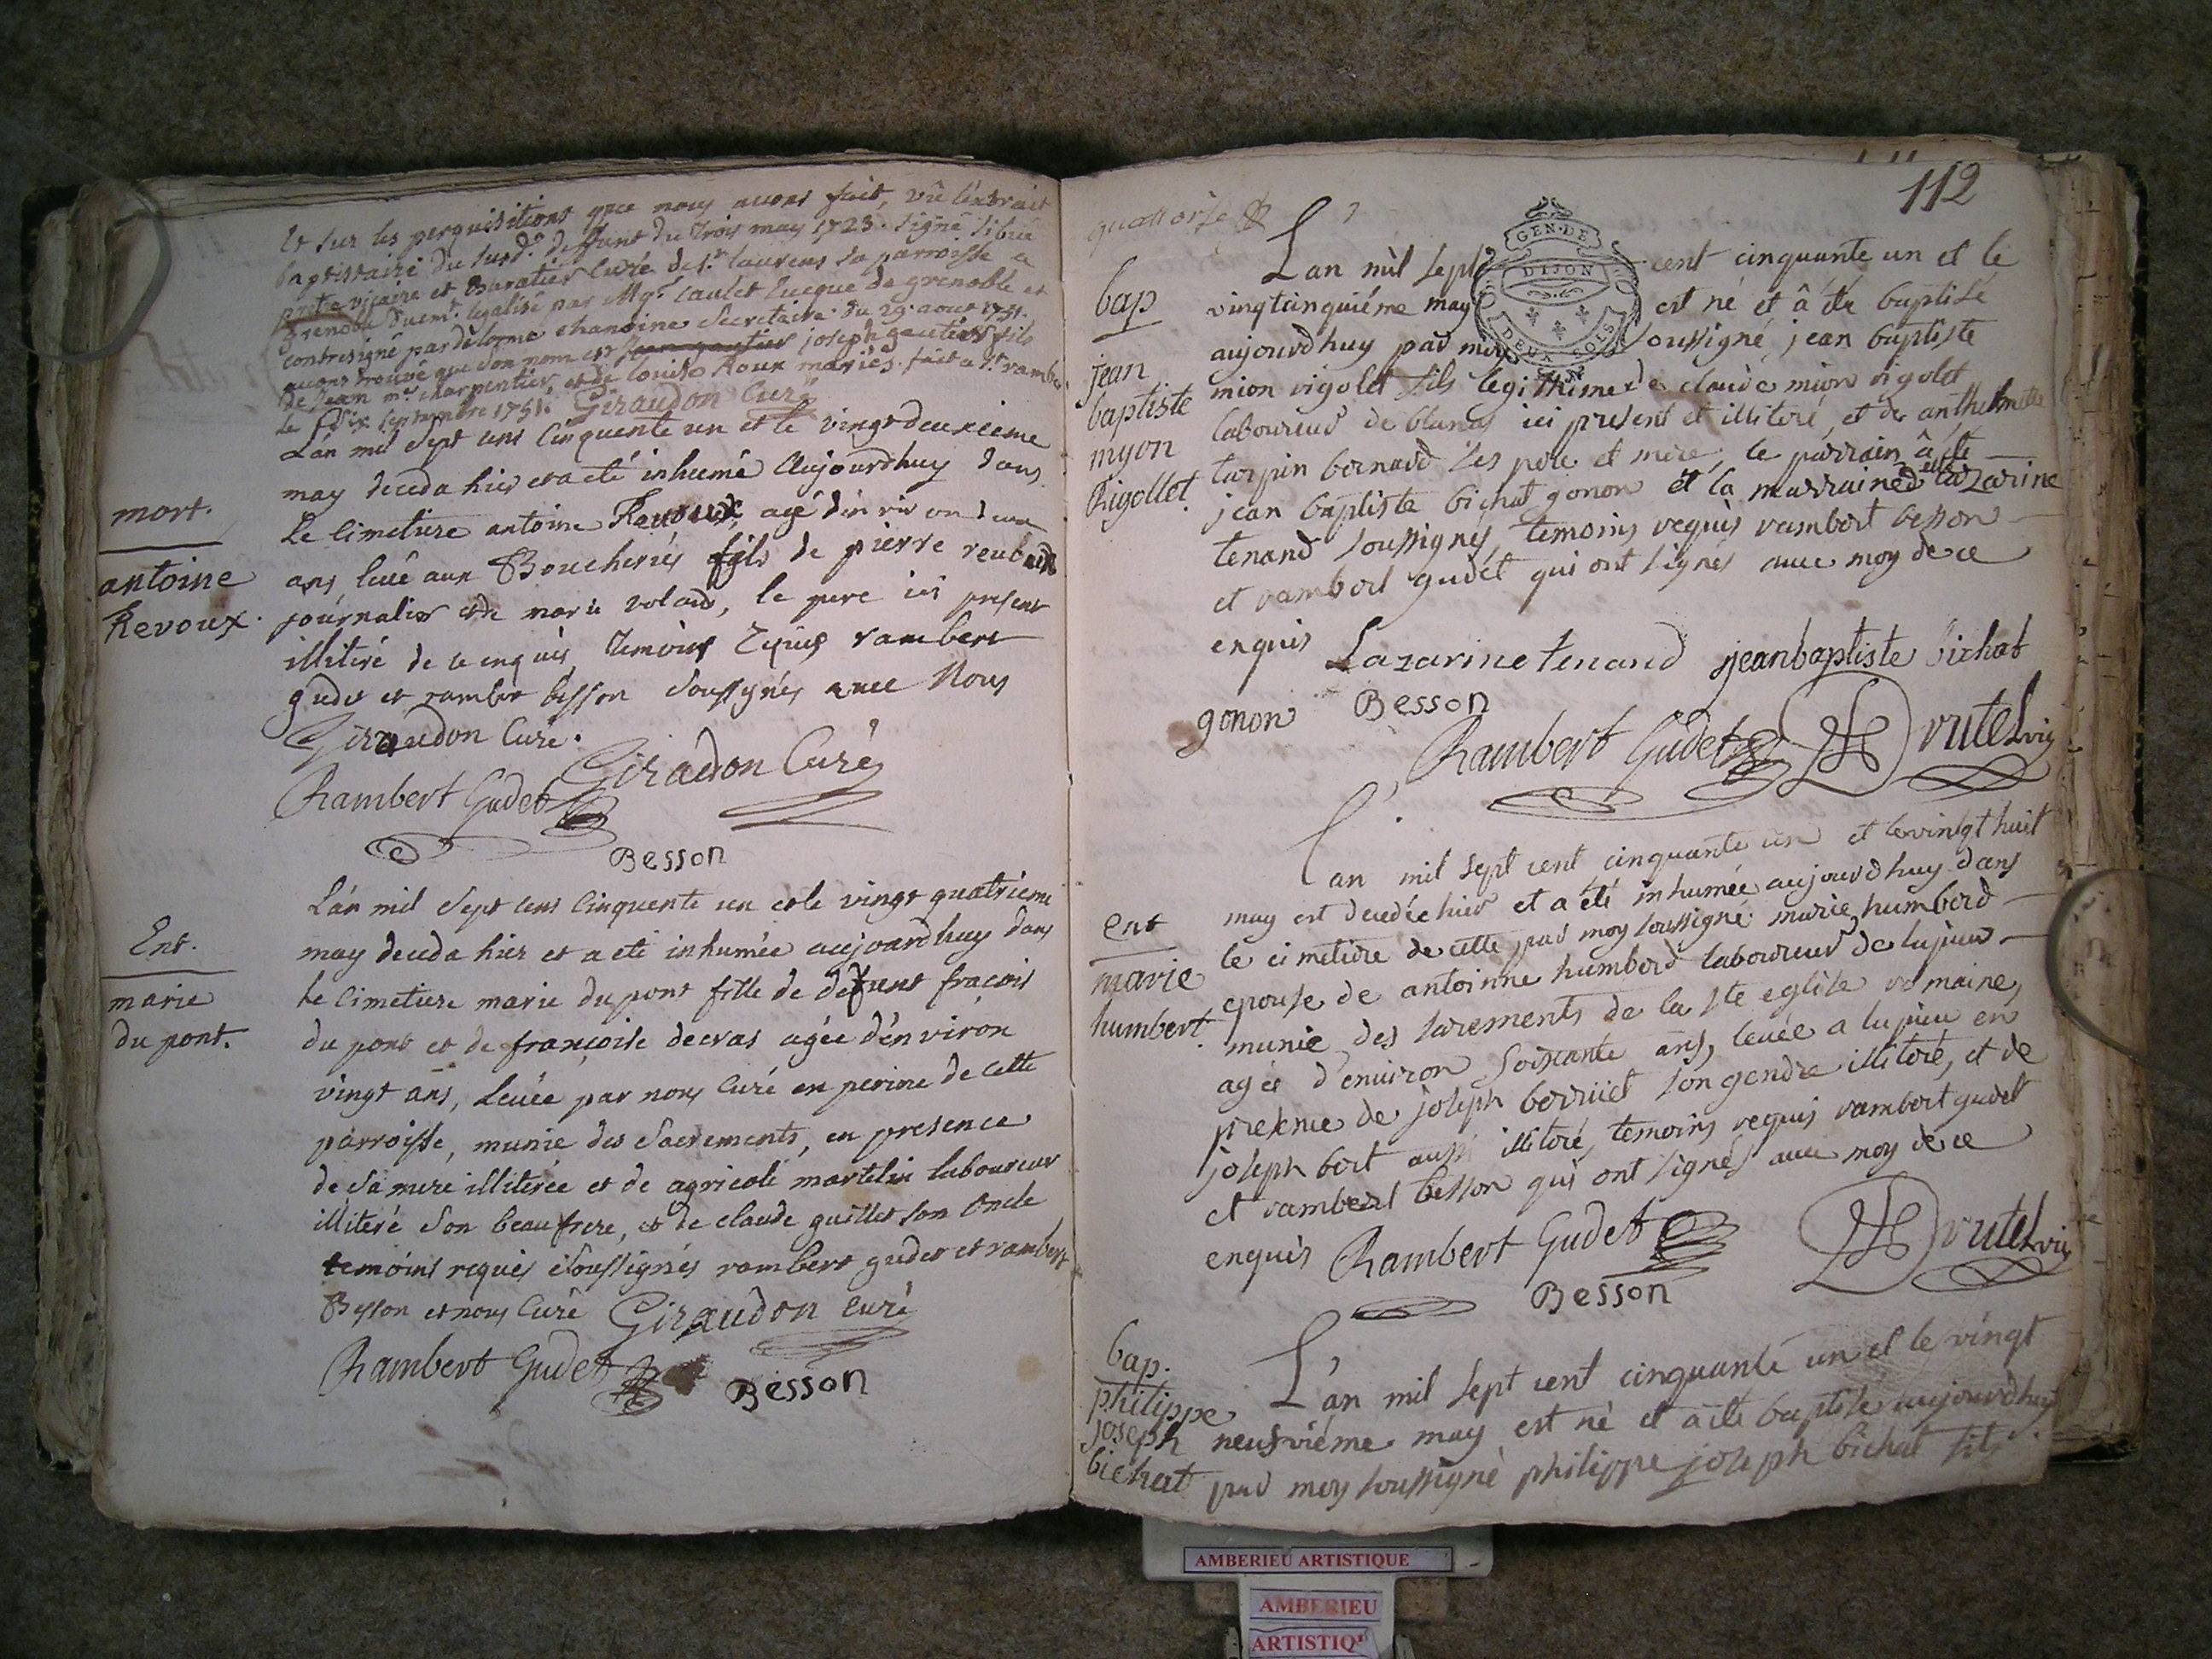 et sur les perquisitions que nous avons fait, vû l'extrait
baptistaire du susd. deffunt du trois may 1723. signé
vicaire et Baratier Curé de st. laurens la parroisse a
grenoble duem. legalisé par Mgr. caulet eveque de grenoble et
contresigné par delorme chanoine Secretaire. du 29. aout 1751.
avons trouvé que son nom est joseph gautier fils
de jean me. charpentier, et de louise Roux mariés. fait a st. rambert
le dix septembre 1751. Giraudon Curé
L'an mil sept cens cinquente un et le vingt deuxieme
may deceda hier et a eté inhumé aujourdhuy dans
le cimetiere antoine Revoux, agé d'environ deux
ans levé aux Boucheries fils de pierre
journalier et de marie voland, le pere ici present
illiteré de ce enquis, temoins requis rambert
gudet et rambert besson soussignés avec Nous
Giraudon Curé.
Giraudon Curé
Rambert Gudet
Besson
mort.
antoine
Revoux.
L'an mil sept cens cinquente un et le vingt quatrieme
may deceda hier et a eté inhumée aujourdhuy dans
le cimetiere marie dupont fille de defunt fracois
du pont et de françoise decras agée d'environ
vingt ans, levée par nous Curé en perine de cette
parroisse, munie des Sacrements, en presence
de sa mere illiterée et de agricole martelin laboureur
illiteré son beaufrere, et de claude guillet son oncle
temoins requis soussignés rambert gudet et rambert
Besson et nous Curé Giraudon curé
Rambert Gudet Besson
Ent.
marie
du pont.
112
quattorse
L'an mil sept cent cinquante un et le
vingtcinquiéme may est né et â éte baptisé
aujourdhuy par moy soussigné jean baptiste
mion rigolet fils legithime de claude mion rigolet
laboureur de blanas ici present et illiteré, et de anthelmette
turpin bernard ses pere et mere, le parrain â éte
jean baptiste bichat gonon et la marraine lazarine
tenand soussignés, temoins requis rambert besson
et rambert gudet qui ont signés avec moy de ce
enquis Lazarine tenand jeanbaptiste bichat
gonon Besson
Rambert Gudet rutet vic
GEN. DE
DIJON
DEUX SOLS
bap
jean
baptiste
myon
Rigollet.
L'an mil sept cent cinquante un et le vingt huit
may est decedée hier et a été inhumée aujourdhuy dans
le cimetiere de cette par moy soussigné marie humberd
epouse de antoinne humberd laboureur de lupieu
munie des sacrements de la ste eglise romaine,
agée d'environ soixante ans, levée a lupieu en
presence de joseph berruiet son gendre illiteré, et de
joseph bert aussi illiteré, temoins requis rambert gudet
et rambert besson qui ont signés avec moy de ce
enquis Rambert Gudet rutet vic
Besson
ent
marie
humbert.
L'an mil sept cent cinquante un et le vingt
neufviéme may est né et a éte baptisé aujourdhuy
par moy soussigné philippe joseph bichat fils
bap.
philippe
joseph
bichat
AMBERIEU ARTISTIQUE
AMBERIEU
ARTISTIQ